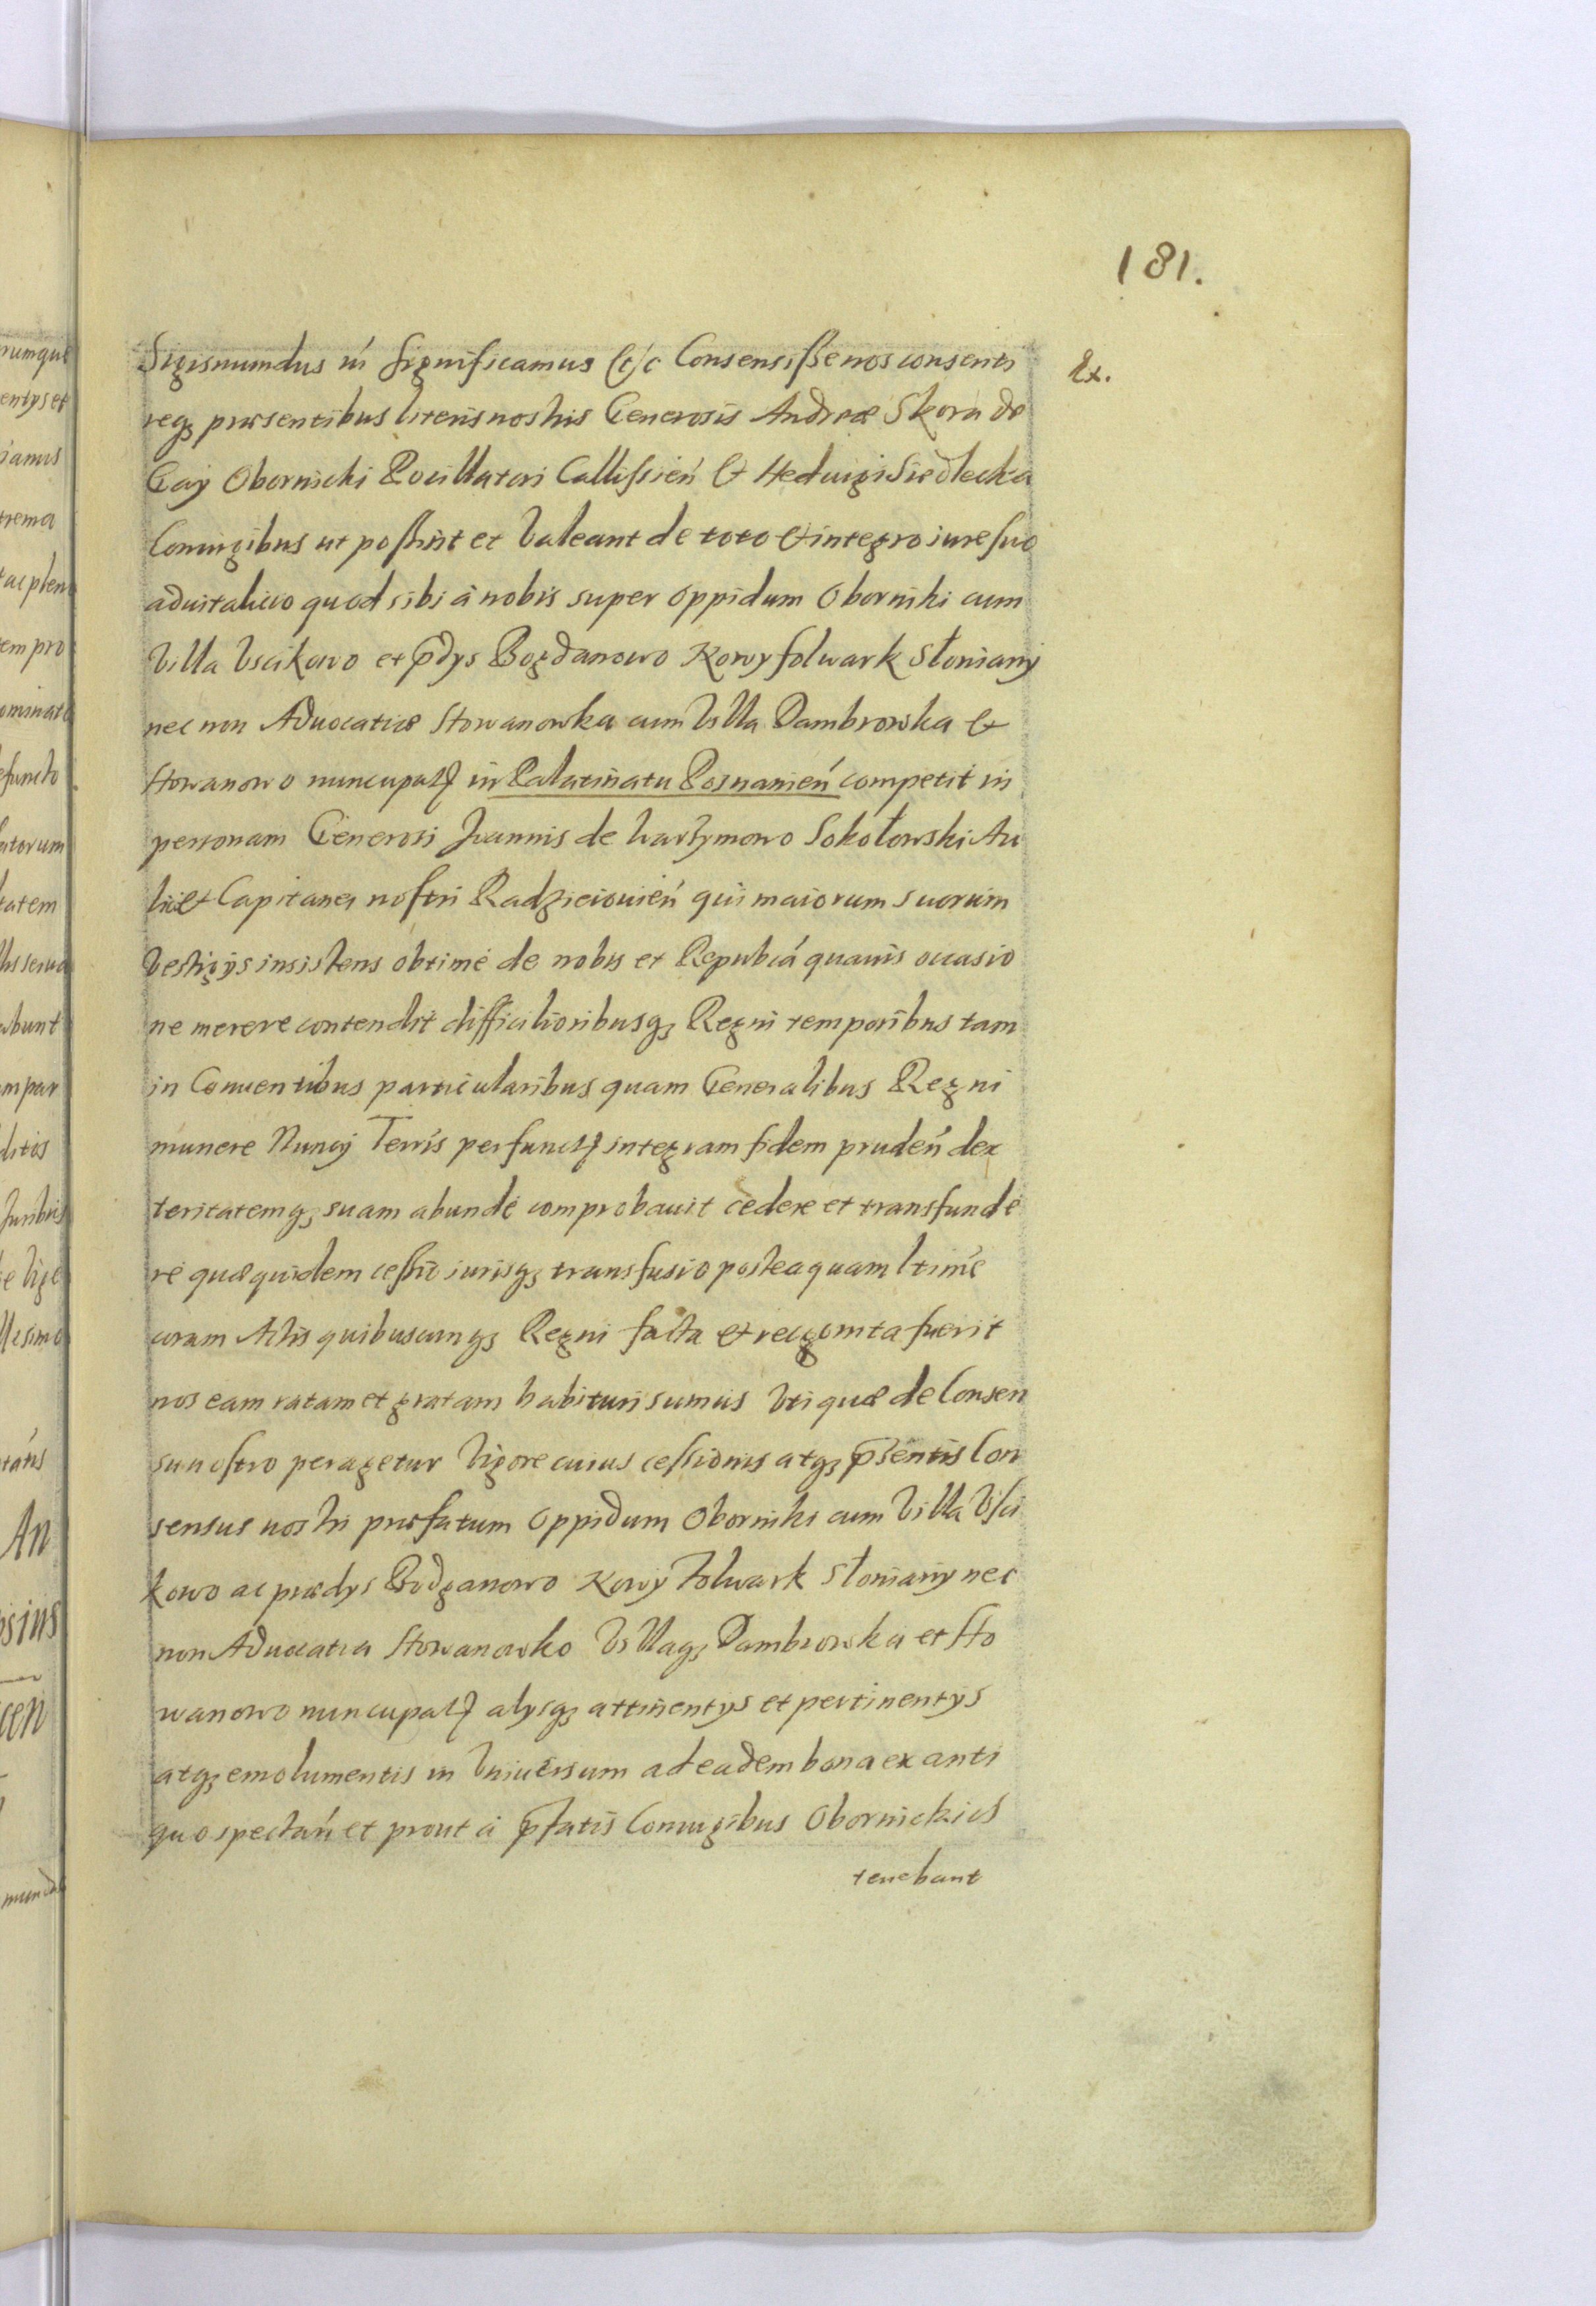 181.
Sigismundus iń significamus &c Consensisse nos consenti
Ex.
reqȝ præsentibus literis nostris Generosis Andreæ Skora de
Gay Obornicki Pocillatori Callissień & Hedwigi Siedlecka
Coniugibus ut possint et valeant de toto & integro iure suo
aduitalicio quod sibi à nobis super oppidum Oborniki cum
Villa Vscikowo et p̄dys Bogdanowo Kowy folwark Słoniany
nec non Aduocatiæ Stowanowka cum Villa Dambrowka &
Stowanowo nuncupatɋ in Palatinatu Posnanień competit in
personam Generosi Joannis de Warzymowo Sokołowski Au
lici & Capitanei nostri Radzieiouień qui maiorum suorum
vestigijs insistens obtimè de nobis et Repubcá quauis occasio
ne merere contendit difficilioribusqȝ Regni temporibus tam
in Conuentibus particularibus quam Generalibus Regni
munere Nuncij Terris perfunctɋ integram fidem prudeń dex
teritatemqȝ suam abundè comprobauit cedere et transfunde
re quæquidem cessio iurisqȝ transfusio posteaquam ltimè
coram Actis quibuscunqȝ Regni facta & recognita fuerit
nos eam ratam et gratam habituri sumus vti quæ de Consen
su nostro peragetur Vigore cuius cessionis atqȝ p̄sentis Con
sensus nostri præfatum oppidum Oborniki cum Villa Vsci
kowo ac prædys Bodganowo Kowy Folwark Słoniany nec
non Aduocatia Stowanowko Villaqȝ Dambrowka et Sto
wanowo nuncupatɋ alysqȝ attinentys et pertinentys
atqȝ emolumentis in Vniuersum ad eadem bona ex anti
quo spectań et prout à p̄fatis Coniugibus Obornickich
tenebant